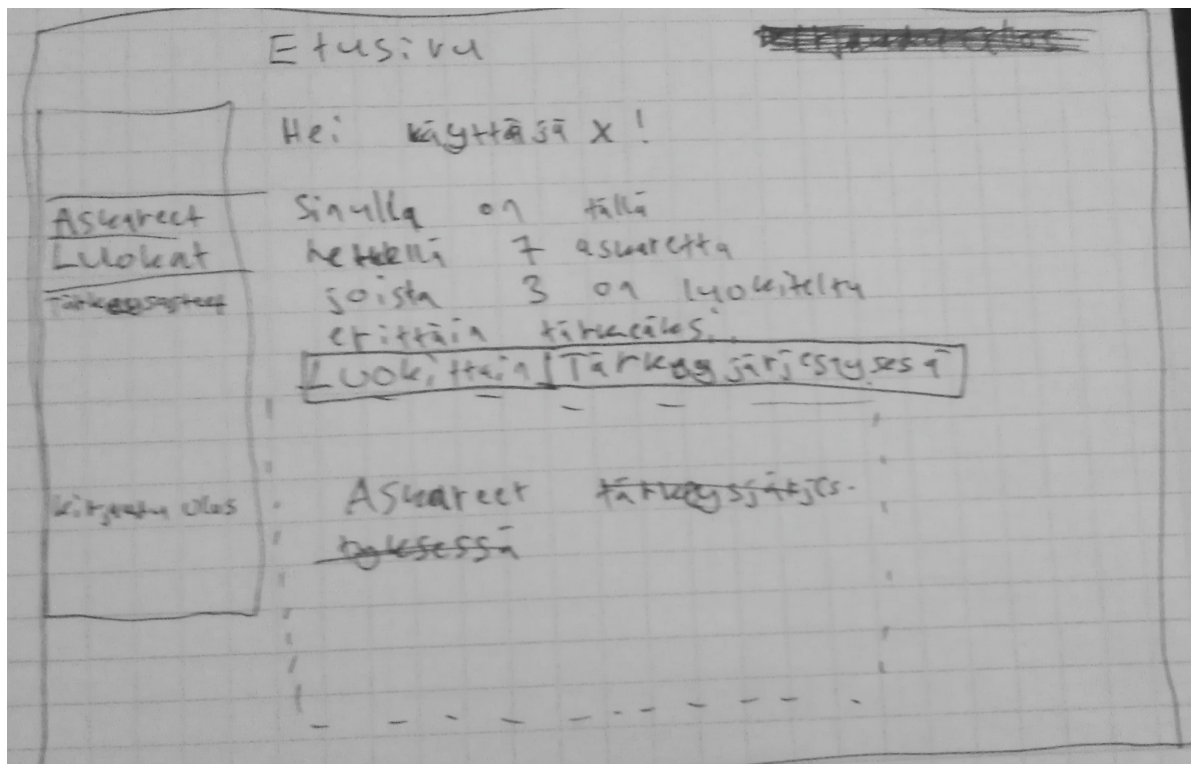 Etusivu
Hei käyttäjä X!
Askareet
Luokat
Tärkeysasteet
Kirjaudu ulos
Sinulla on tällä
hetkellä 7 askaretta
joista 3 on luokiteltu
erittäin tärkeäksi.
Luokittain Tärkeysjärjestyksesä
Askareet tärkeysjärjes-
tyksessä